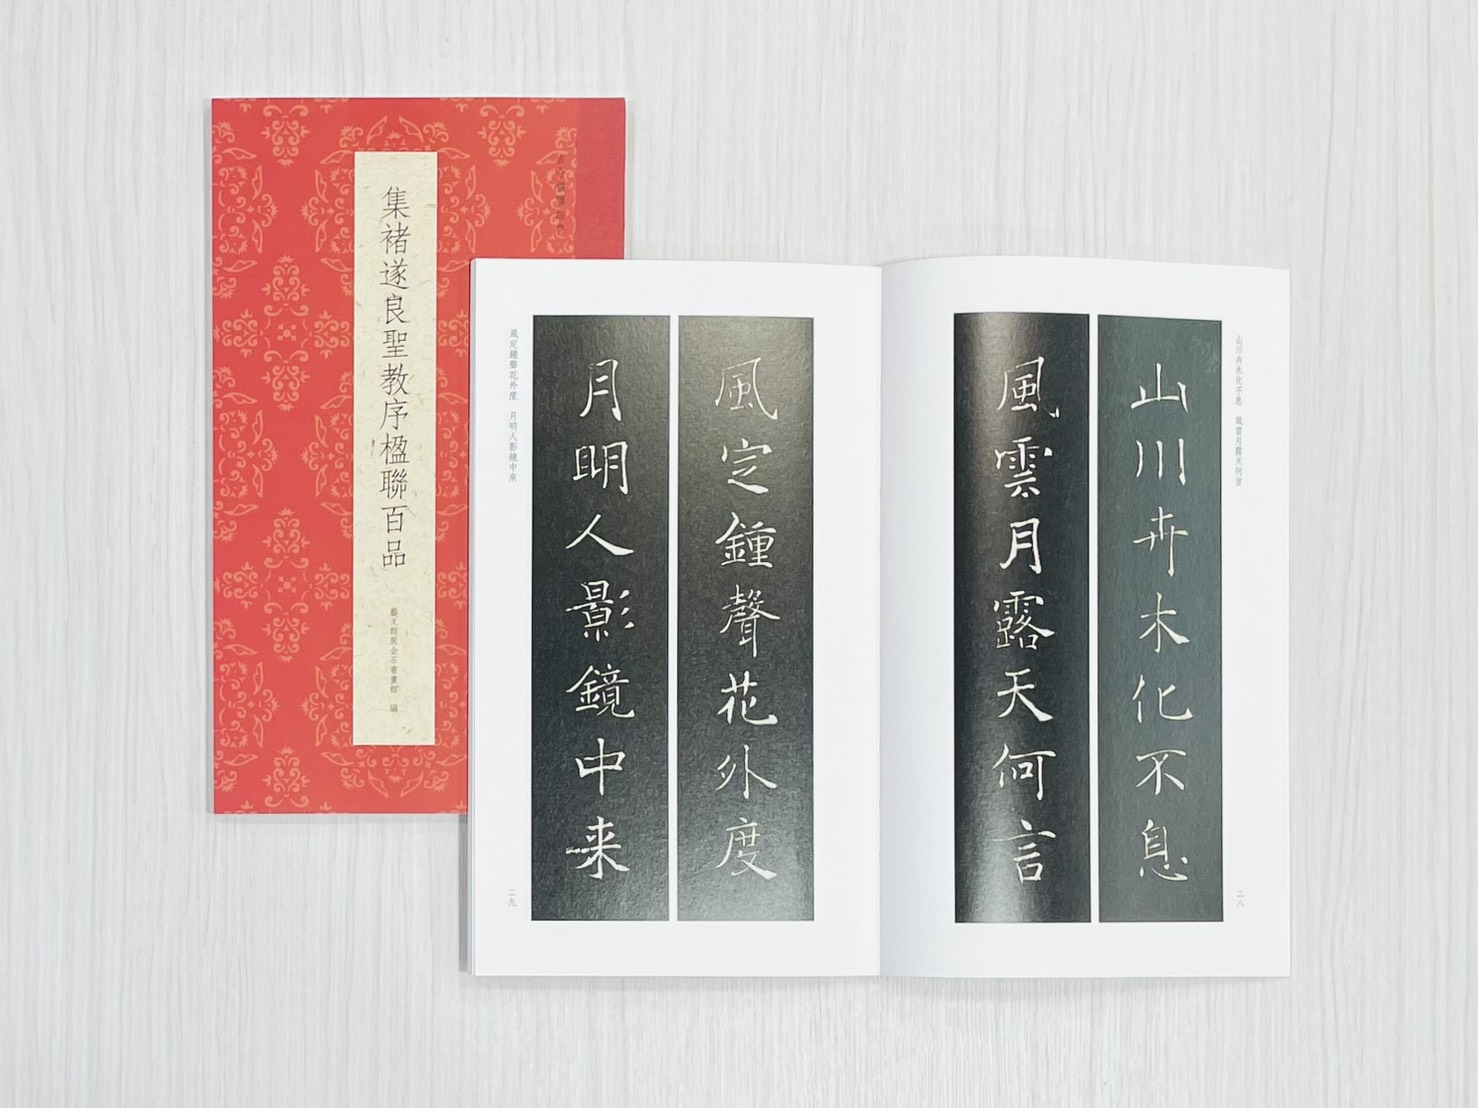 集褚遂良聖教序楹聯百品
藝文類聚金石書畫館 編
山川卉木化不息 風雲月露天何言
山川卉木化不息
風雲月露天何言
二八
風定鐘聲花外度
月明人影鏡中来
風定鐘聲花外度 月明人影鏡中来
二九